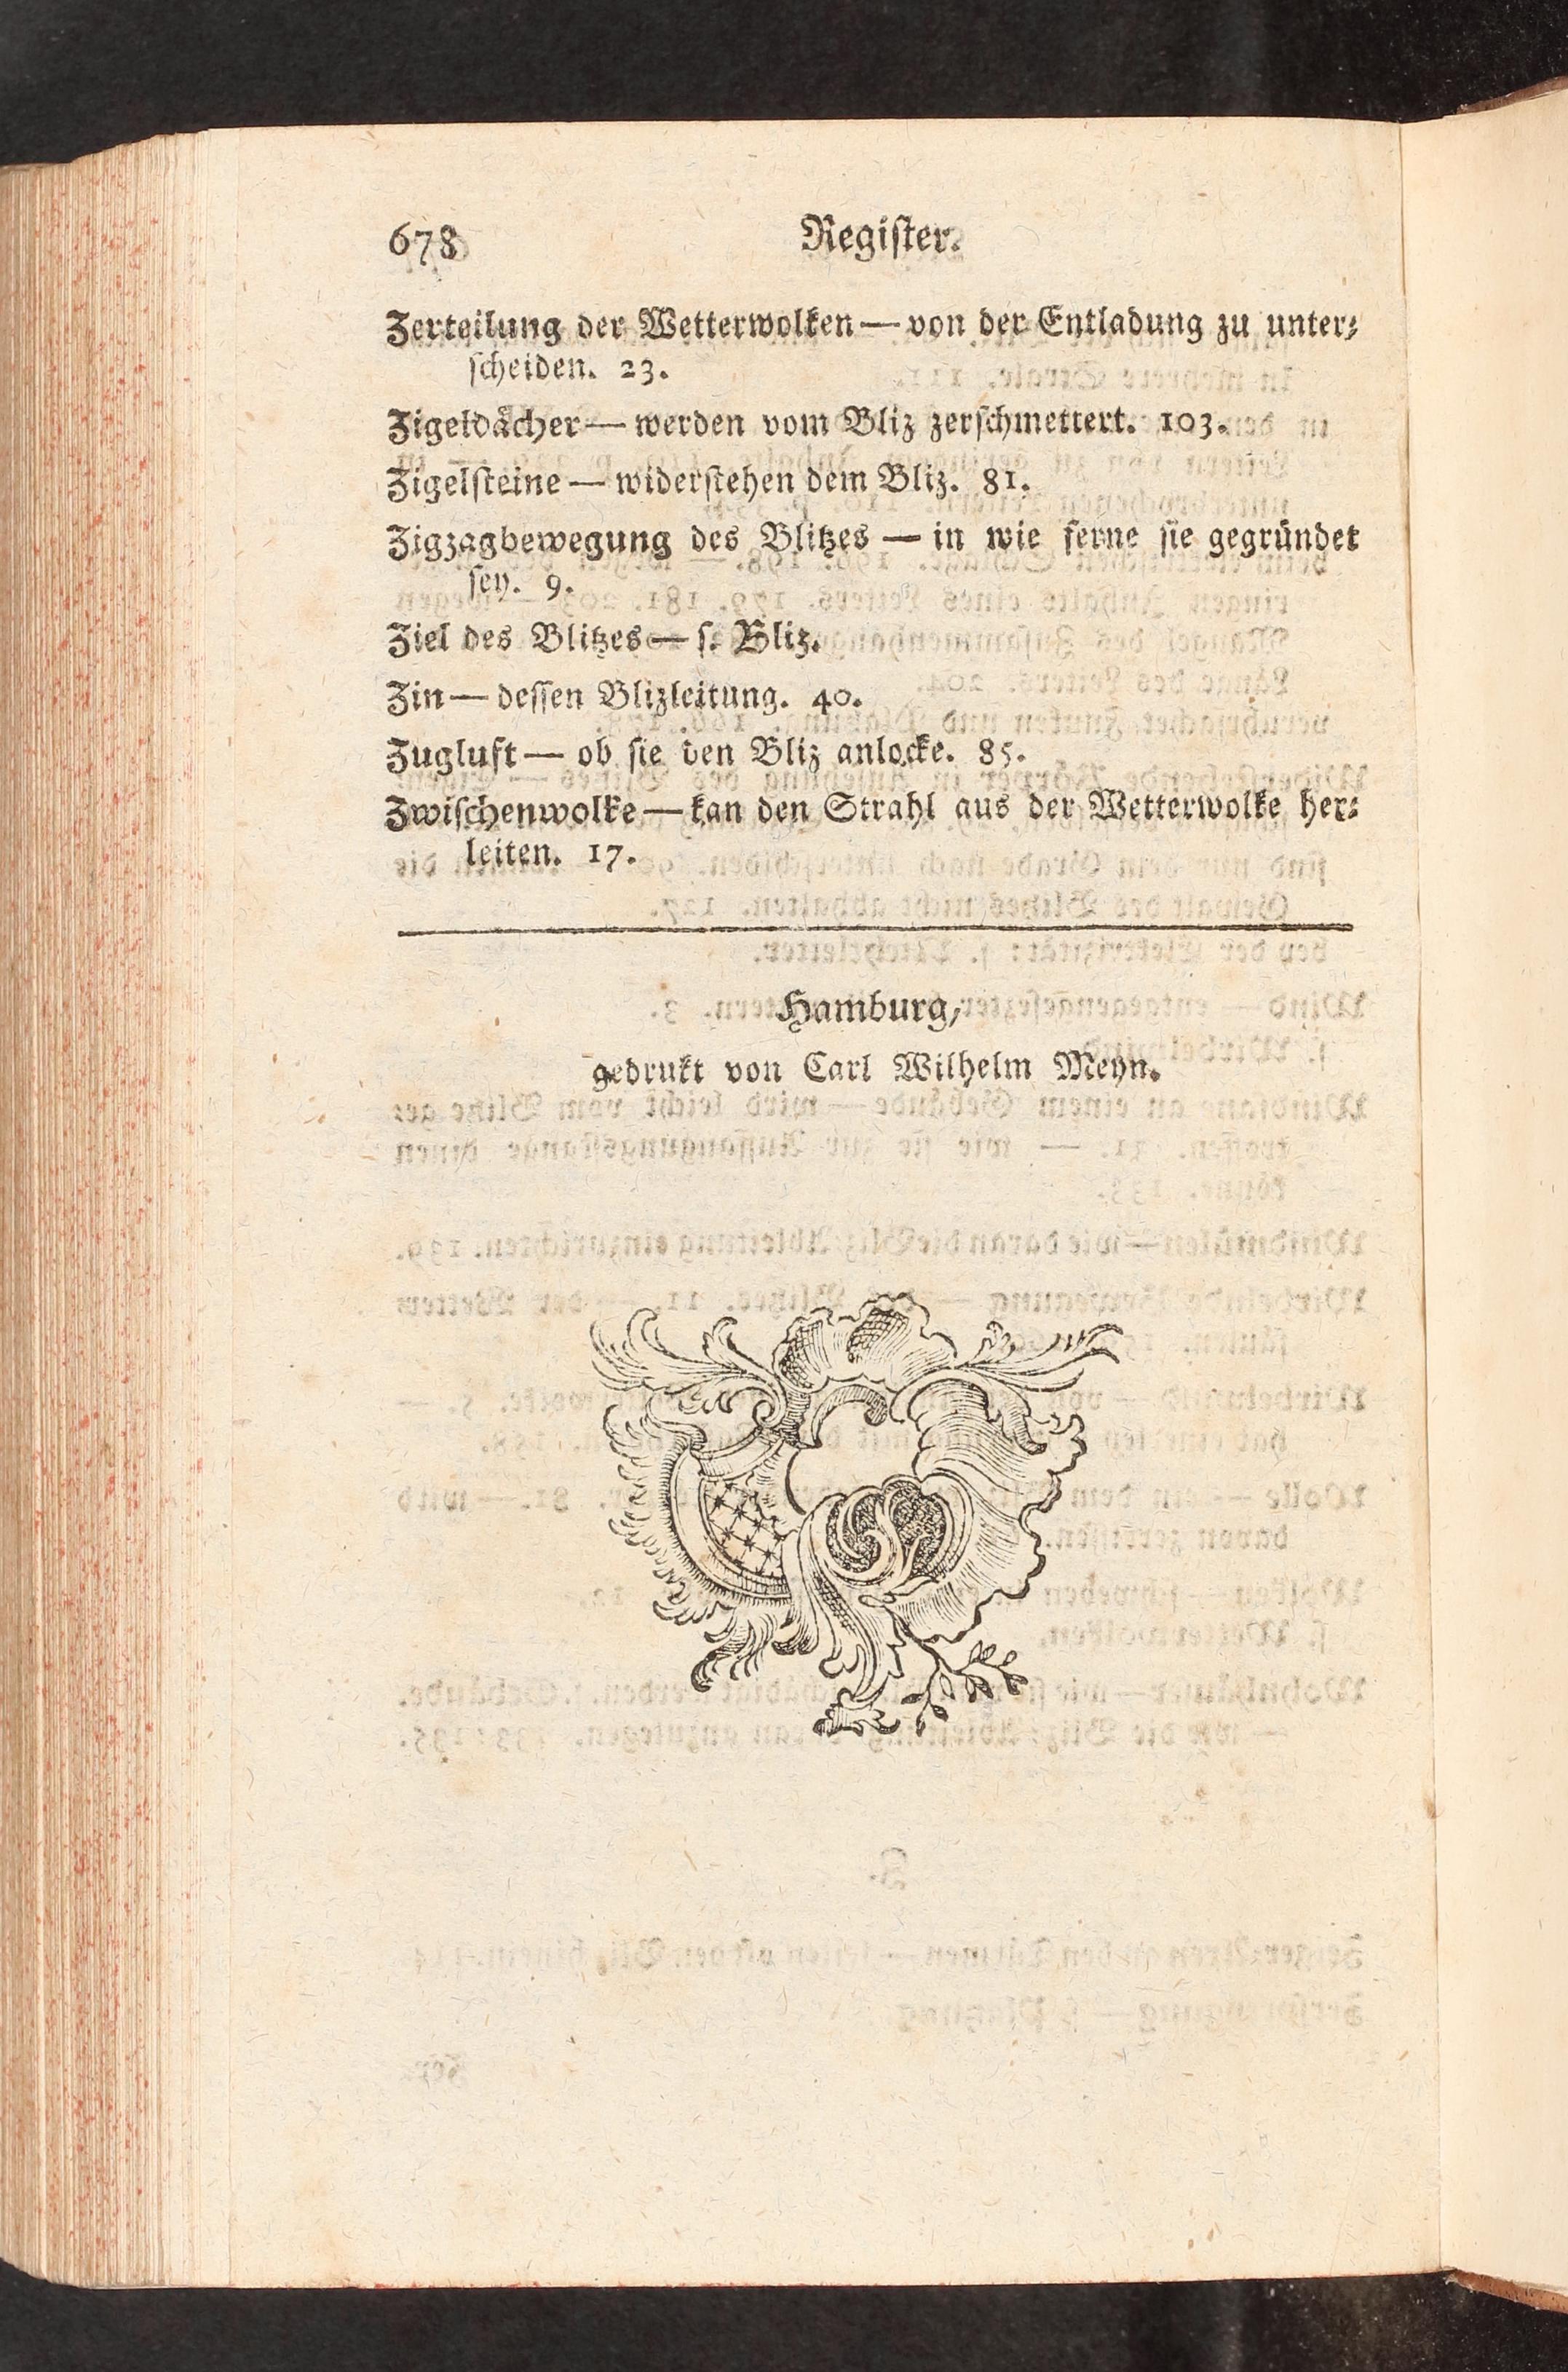 678 Register.
Zerteilung der Wetterwolken — von der Entladung zu unter⸗
scheiden. 23.
Zigeldächer — werden vom Bliz zerschmettert. 103.
Zigelsteine — widerstehen dem Bliz. 81.
Zigzagbewegung des Blitzes — in wie ferne sie gegründet
sey. 9.
Ziel des Blitzes — s. Bliz.
Zin — dessen Blizleitung. 40.
Zugluft — ob sie den Bliz anlocke. 85.
Zwischenwolke — kan den Strahl aus der Wetterwolke her⸗
leiten. 17.
Hamburg,
gedrukt von Carl Wilhelm Meyn.